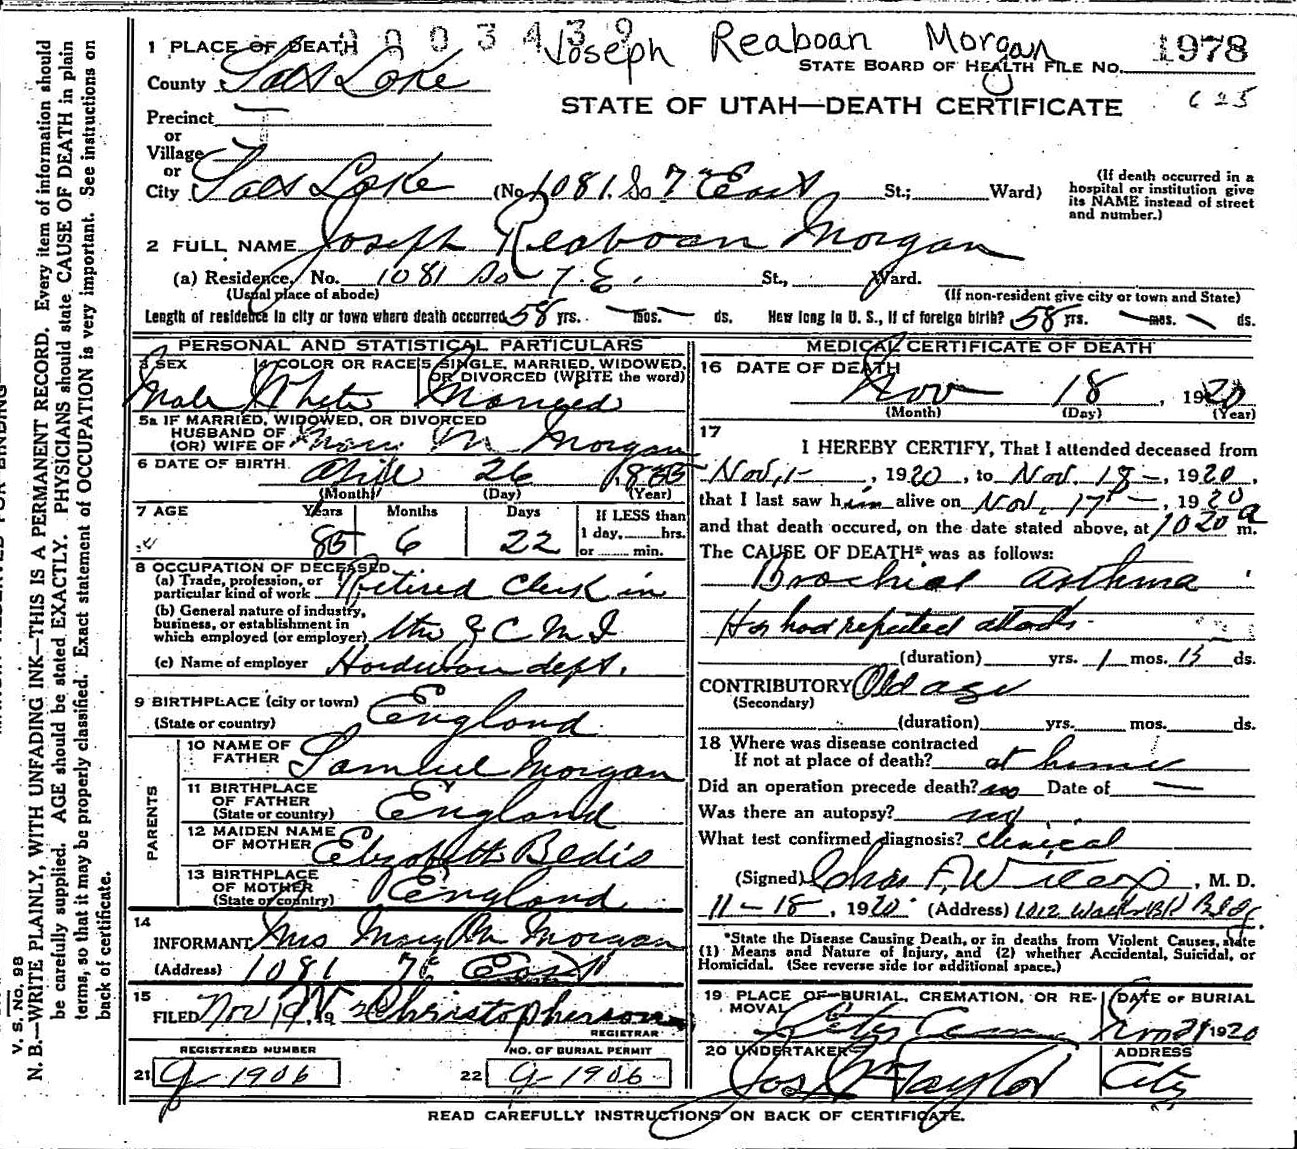 0003439
Joseph Reaboan Morgan
1978
STATE BOARD OF HEALTH FILE NO.
625
STATE OF UTAH—DEATH CERTIFICATE
1 PLACE OF DEATH
County Salt Lake
Precinct
or
Village
or
City Salt Lake (No. 1081 So 7th East St.; Ward)
(If death occurred in a hospital or institution give its NAME instead of street and number.)
2 FULL NAME Joseph Reaboan Morgan
(a) Residence, No. 1081 So 7 E. St., Ward.
(Usual place of abode) (If non-resident give city or town and State)
Length of residence in city or town where death occurred 58 yrs. — mos. ds. How long in U. S., if of foreign birth? 58 yrs. — mos. ds.
PERSONAL AND STATISTICAL PARTICULARS
3 SEX Male
4 COLOR OR RACE White
5 SINGLE, MARRIED, WIDOWED, OR DIVORCED (WRITE the word) Married
5a IF MARRIED, WIDOWED, OR DIVORCED
HUSBAND OF
(OR) WIFE OF Mary M Morgan
6 DATE OF BIRTH April 26 1835
(Month) (Day) (Year)
7 AGE Years Months Days
If LESS than 1 day, hrs. or min.
85 6 22
8 OCCUPATION OF DECEASED
(a) Trade, profession, or particular kind of work Retired Clerk in
(b) General nature of industry, business, or establishment in which employed (or employer) the Z C M I
(c) Name of employer Hardware dept.
9 BIRTHPLACE (city or town)
(State or country) England
PARENTS
10 NAME OF FATHER Samuel Morgan
11 BIRTHPLACE OF FATHER
(State or country) England
12 MAIDEN NAME OF MOTHER Elizabeth Bedis
13 BIRTHPLACE OF MOTHER
(State or country) England
14
INFORMANT Mrs Mary M Morgan
(Address) 1081 7th East
15
FILED Nov 19, 192 Christopherson
REGISTRAR
REGISTERED NUMBER
21 1906
NO. OF BURIAL PERMIT
22 1906
MEDICAL CERTIFICATE OF DEATH
16 DATE OF DEATH
Nov 18, 1920
(Month) (Day) (Year)
17
I HEREBY CERTIFY, That I attended deceased from
Nov. 1—, 1920, to Nov. 18—, 1920,
that I last saw him alive on Nov. 17—, 1920
and that death occured, on the date stated above, at 1020 a m.
The CAUSE OF DEATH* was as follows:
Brochial asthma
Has had repeated attacks.
(duration) yrs. 1 mos. 15 ds.
CONTRIBUTORY Old age
(Secondary)
(duration) yrs. mos. ds.
18 Where was disease contracted
If not at place of death? at home
Did an operation precede death? no Date of —
Was there an autopsy? no
What test confirmed diagnosis? Clinical
(Signed) Chas F. Wilcox, M. D.
11-18, 1920. (Address) 1012 Walker Bk Bldg.
*State the Disease Causing Death, or in deaths from Violent Causes, state
(1) Means and Nature of Injury, and (2) whether Accidental, Suicidal, or
Homicidal. (See reverse side for additional space.)
19 PLACE OF BURIAL, CREMATION, OR REMOVAL
DATE OF BURIAL
Nov 21 1920
20 UNDERTAKER
Jos Taylor
ADDRESS
City
READ CAREFULLY INSTRUCTIONS ON BACK OF CERTIFICATE.
V. S. No. 98
N. B.—WRITE PLAINLY, WITH UNFADING INK—THIS IS A PERMANENT RECORD. Every item of information should
be carefully supplied. AGE should be stated EXACTLY. PHYSICIANS should state CAUSE OF DEATH in plain
terms, so that it may be properly classified. Exact statement of OCCUPATION is very important. See instructions on
back of certificate.